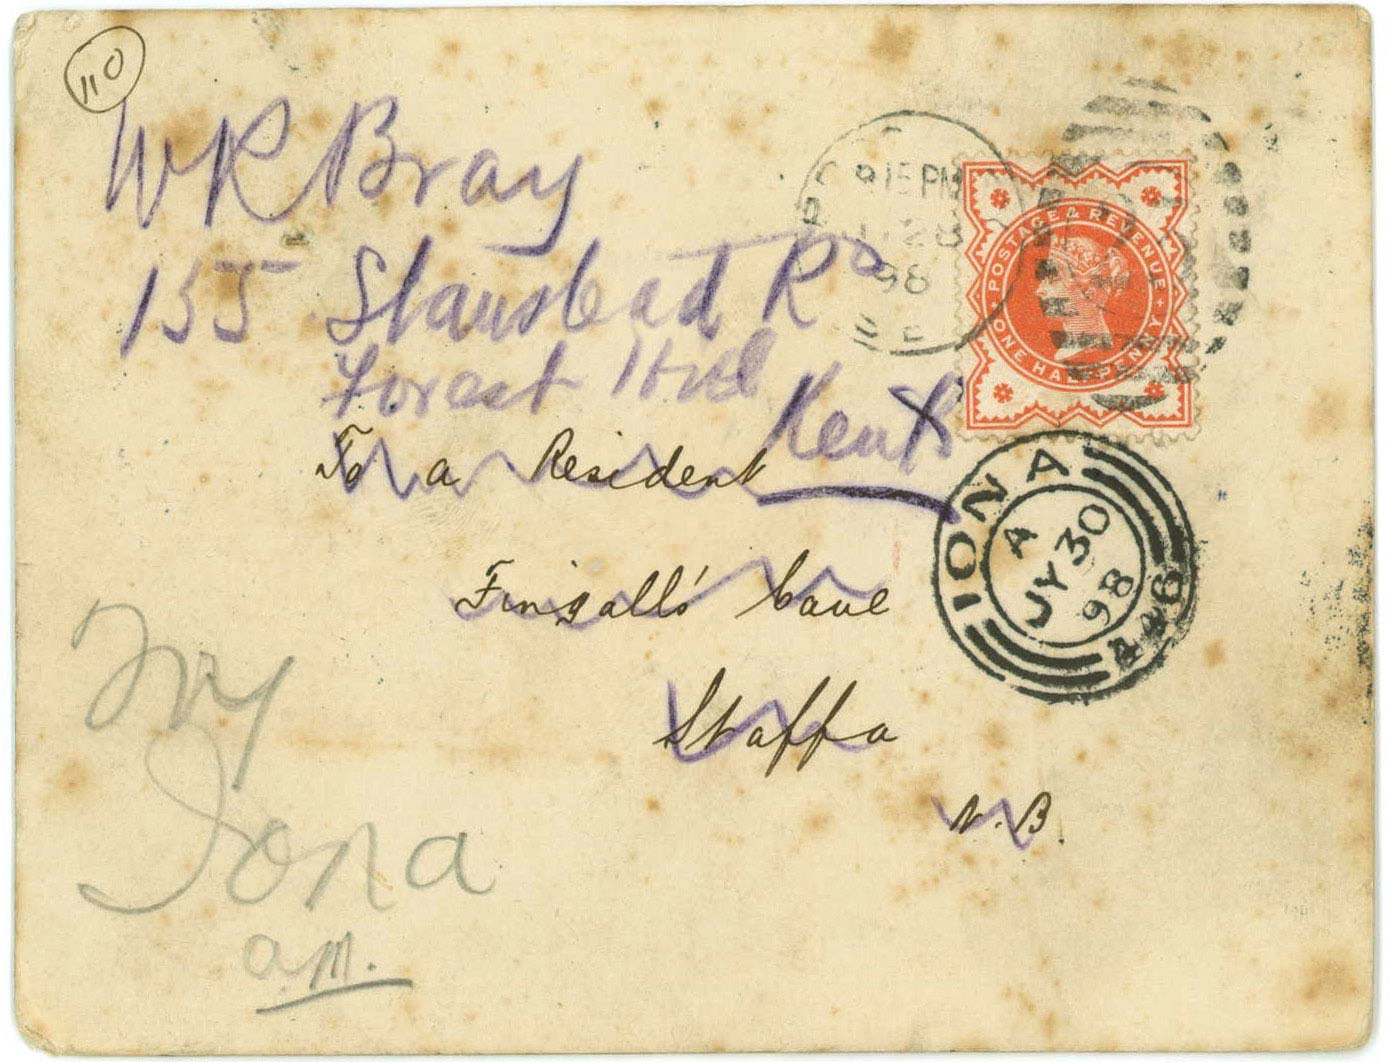 110
W R Bray
155 Stanstead Rd
Forest Hill
Kent
To a Resident
Fingall's Cave
Staffa
N.B.
Try
Iona
a.m.
9 15 PM
28
98
S.E.
POSTAGE & REVENUE
ONE HALFPENNY
IONA
A
JY 30
98
446